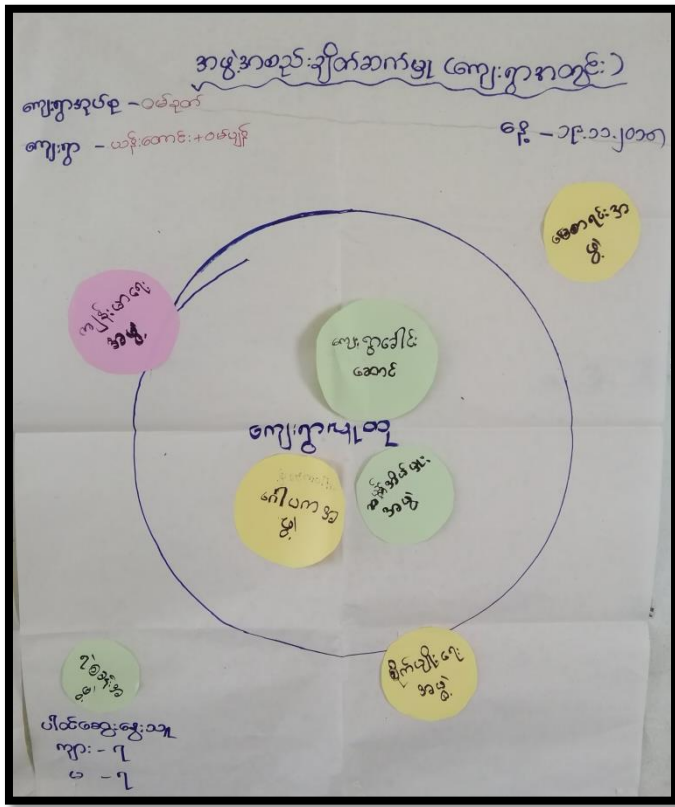 အဖွဲ့အစည်းချိတ်ဆက်မှု (ကျေးရွာအတွင်း)
ကျေးရွာအုပ်စု - ဝမ်နုတ်
ကျေးရွာ - ယန်းတောင်း + ဝမ်ပျန်
နေ့ - ၁၉.၁၁.၂၀၁၈
မြေစာရင်းအ
ဖွဲ့
ကျန်းမာရေး
အဖွဲ့
ကျေးရွာခေါင်း
ဆောင်
ကျေးရွာလူထု
ဂေါပကအ
ဖွဲ့
အဖွဲ့
စိုက်ပျိုးရေး
အဖွဲ့
ပါဝင်ဆွေးနွေးသူ
ကျား - ၇
မ - ၇